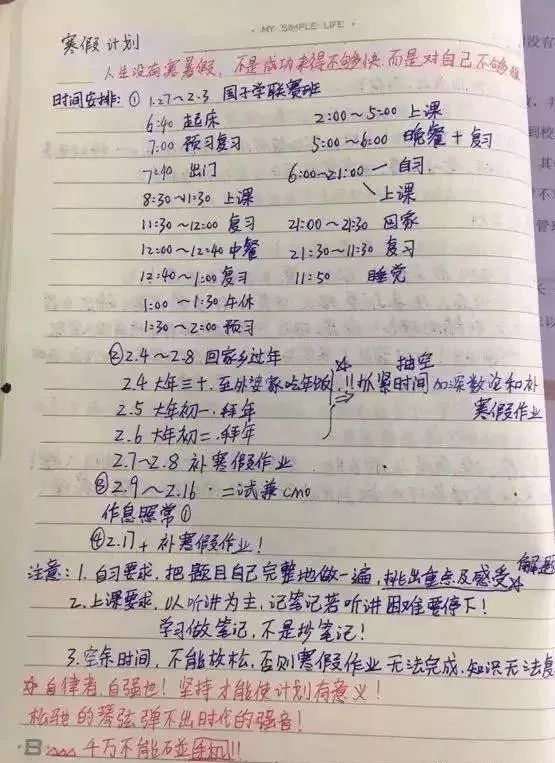 · MY SIMPLE LIFE ·
寒假计划
人生没有寒暑假，不是成功来得不够快，而是对自己不够狠
时间安排：① 1.27～2.3 国子学联赛班
6:40 起床
2:00～5:00 上课
7:00 预习复习
5:00～6:00 晚餐＋复习
7:40 出门
6:00～21:00 — 自习
上课
8:30～11:30 上课
11:30～12:00 复习
21:00～21:30 回家
12:00～12:40 中餐
21:30～11:30 复习
12:40～1:00 复习
11:50 睡觉
1:00～1:30 午休
1:30～2:00 预习
② 2.4～2.8 回家乡过年
2.4 大年三十．至外婆家吃年饭
☆ 抽空
!! 抓紧时间 加深数论和补
寒假作业
2.5 大年初一．拜年
2.6 大年初二．拜年
2.7～2.8 补寒假作业
③ 2.9～2.16 ·二试兼cmo
作息照常①
④ 2.17+ 补寒假作业！
注意：1. 自习要求，把题目自己完整地做一遍，挑出重点及感受☆
解题
2. 上课要求，以听讲为主，记笔记若听讲困难要停下！
学习做笔记，不是抄笔记！
3. 空余时间，不能放松，否则寒假作业无法完成，知识无法复
☆ 自律者，自强也！坚持才能使计划有意义！
松弛的琴弦弹不出时代的强音！
B 千万不能碰手机!!